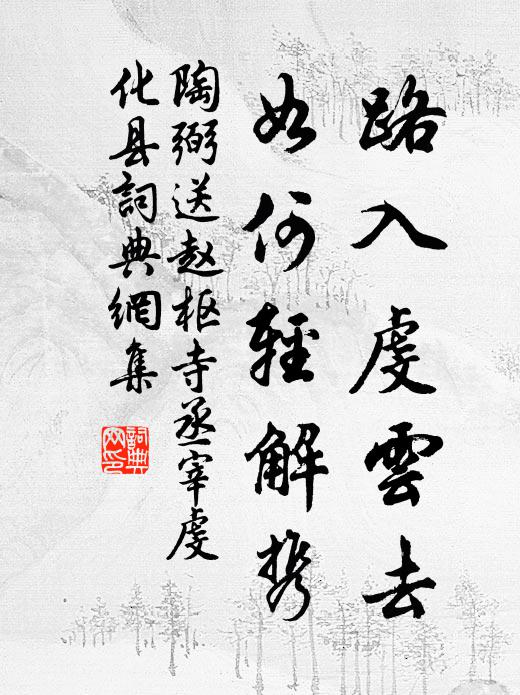 路入虔雲去
如何輕解携
陶弼送赵枢寺丞宰虔
化县詞典網集
詞典网印